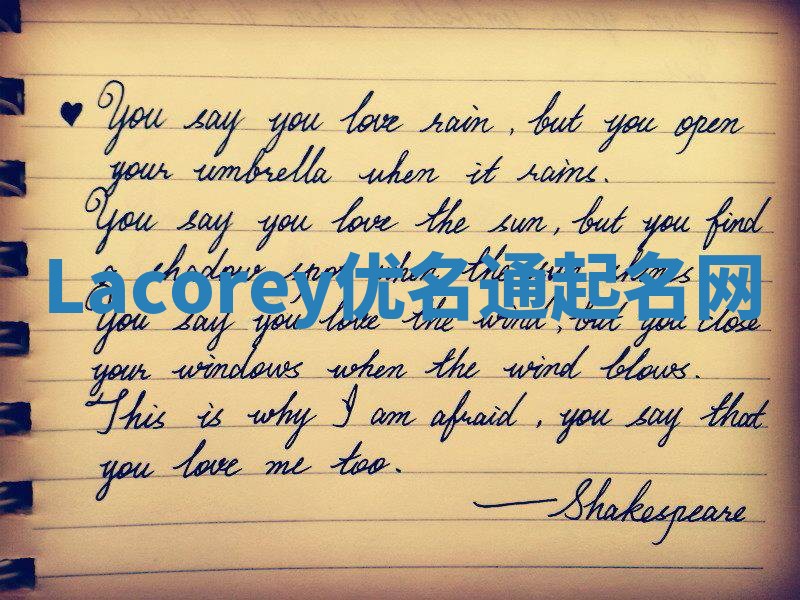 ♥ You say you love rain, but you open
your umbrella when it rains.
You say you love the sun, but you find
a shadow spot when the sun shines
Lacorey优名通起名网
You say you love the wind, but you close
your windows when the wind blows.
This is why I am afraid, you say that
you love me too.
—Shakespeare